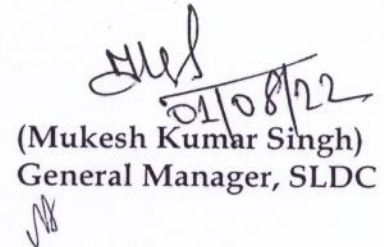 01/08/22
(Mukesh Kumar Singh)
General Manager, SLDC